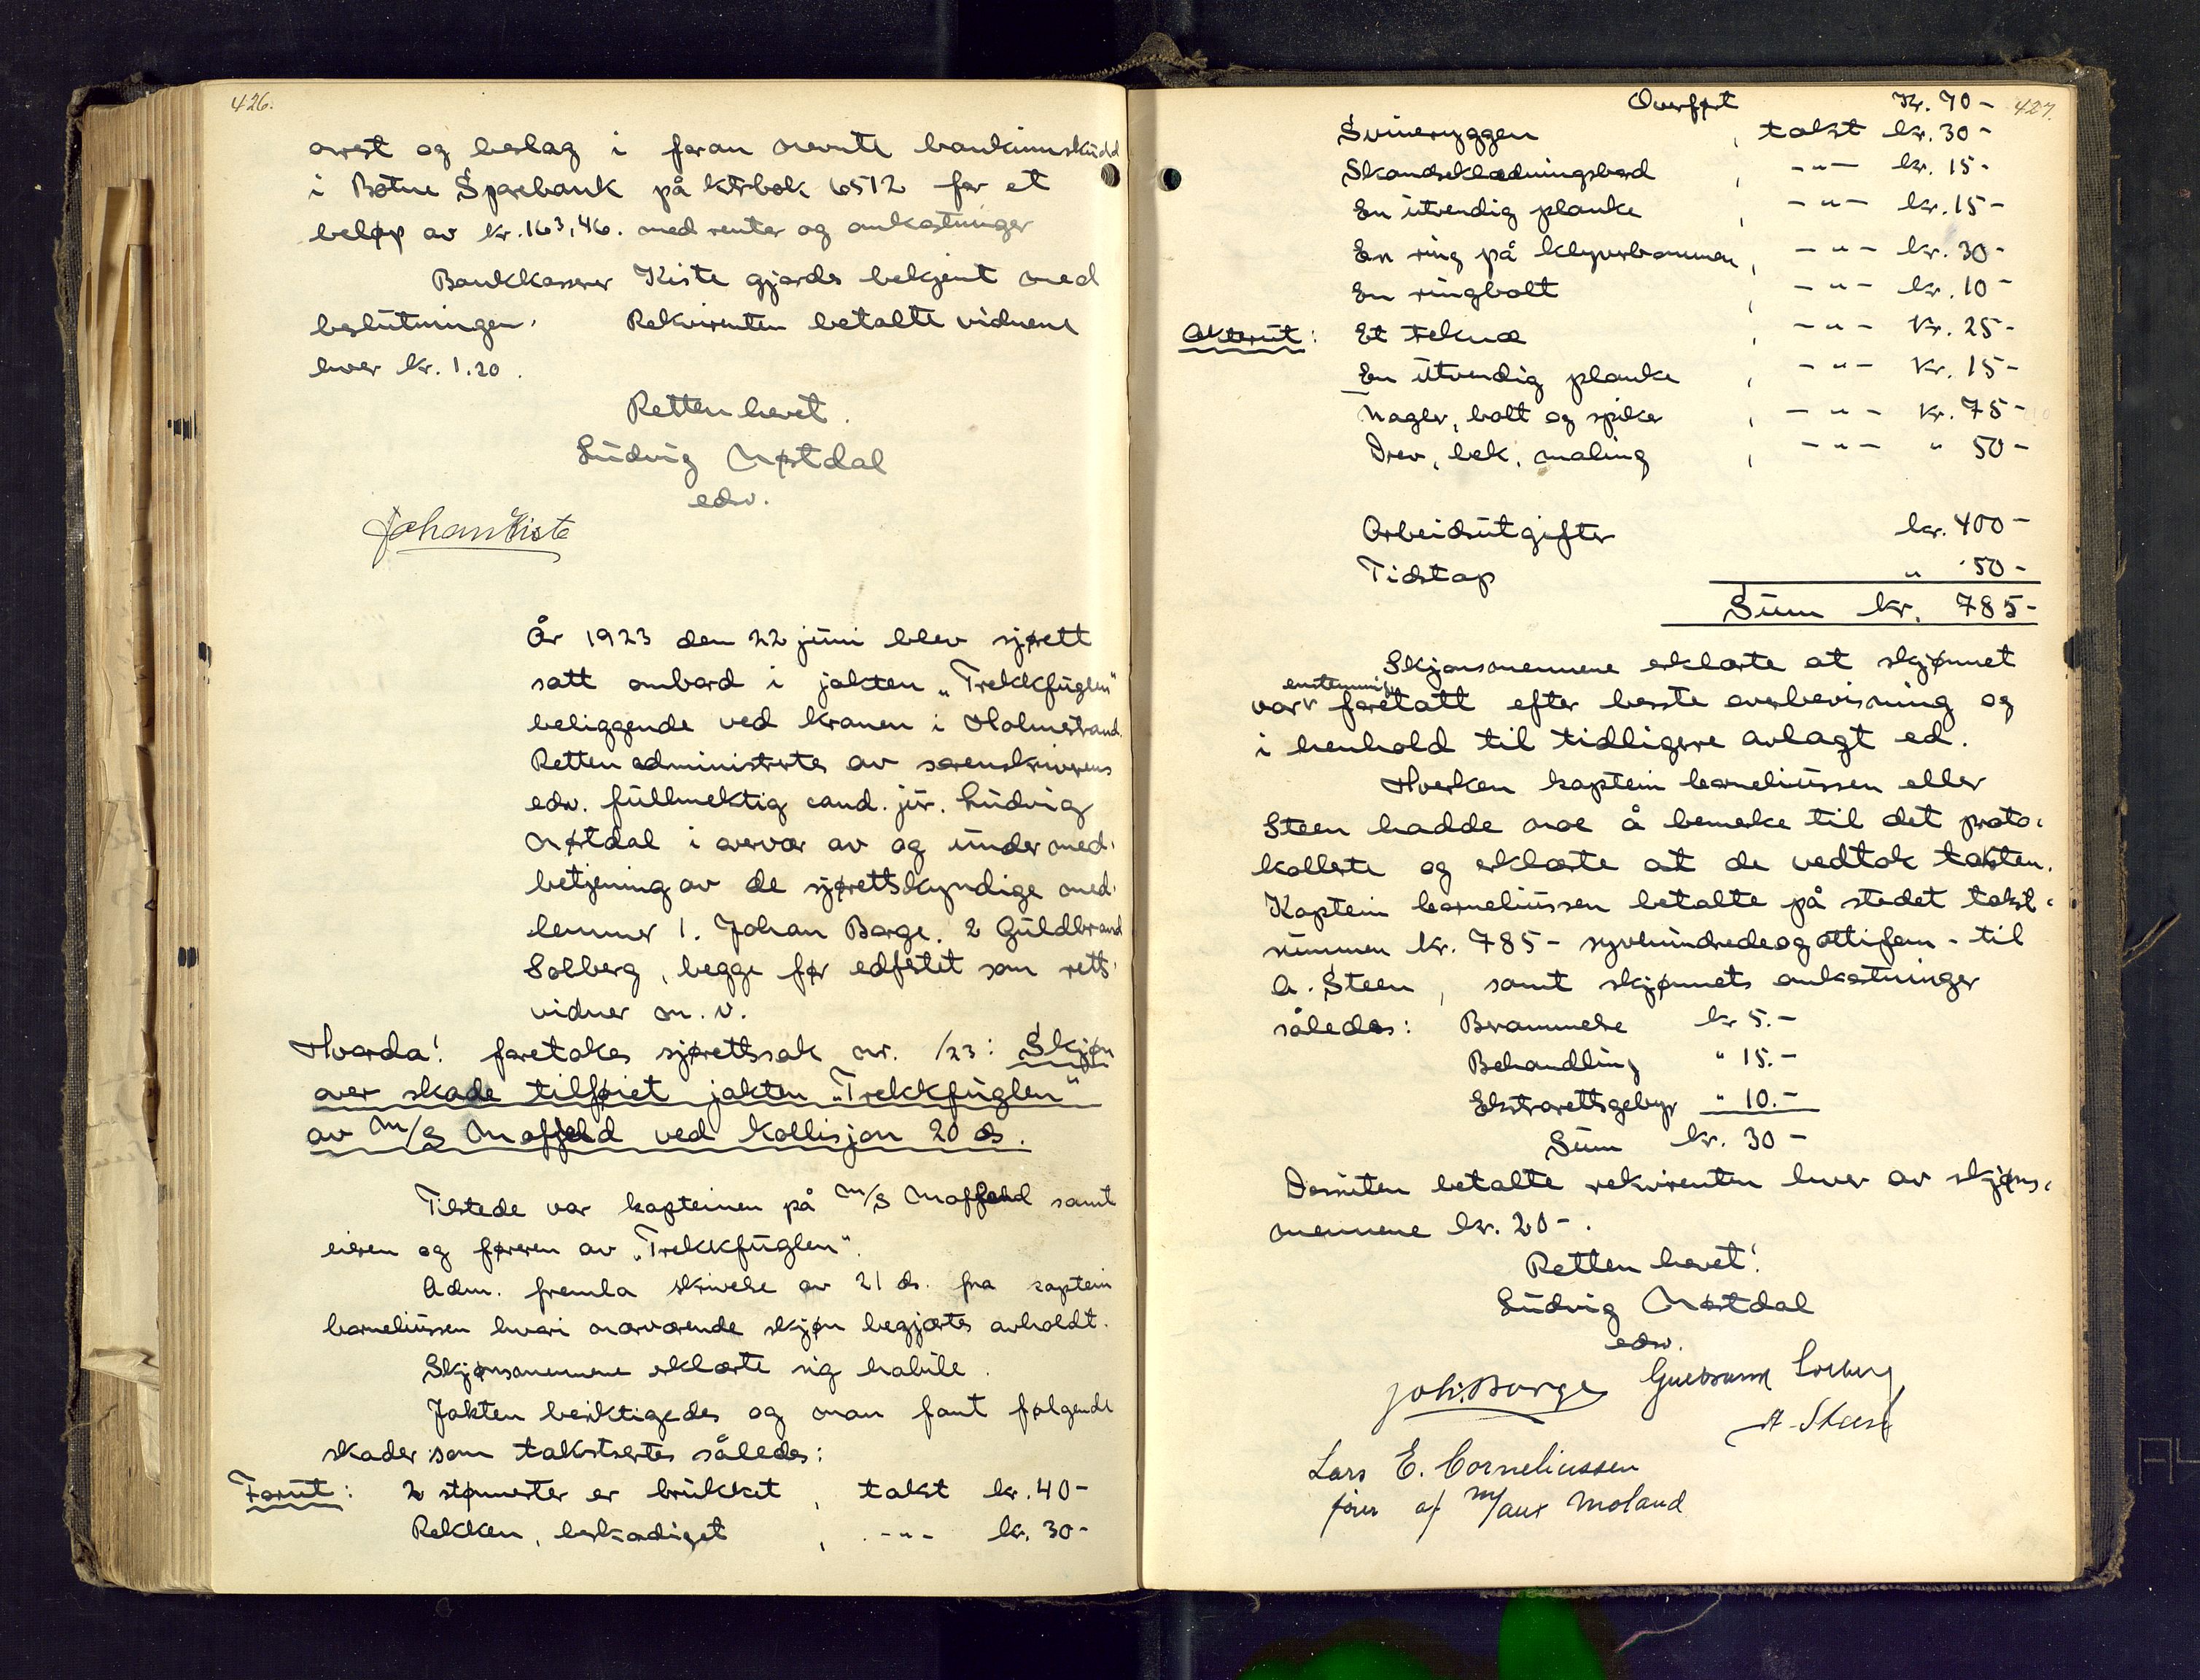 426.
arrest og beslag i foran nevnte bankinnskudd
i Botne Sparebank på ktrbok 6512 for et
beløp av kr. 163,46. med renter og omkostninger
Bankkasserer Kiste gjordes bekjent med
beslutningen. Rekvirenten betalte vidnene
hver kr. 1.20.
Retten hevet.
Ludvig Nøstdal
edsv.
Johan Kiste
År 1923 den 22 juni blev sjørett
satt ombord i jakten „Trekkfuglen"
beliggende ved kranen i Holmestrand.
Retten administrertes av sorenskriverens
edsv. fullmektig cand. jur. Ludvig
Nøstdal i overvær av og under med-
betjening av de sjørettskyndige med-
lemmer 1. Johan Borge. 2 Guldbrand
Solberg, begge før edfestet som retts-
vidner m. v.
Hvorda! foretokes sjørettssak nr. 1/23: Skjøn
over skade tilføiet jakten „Trekkfuglen"
av M/S ved kollisjon 20 ds.
Tilstede var kapteinen på M/S samt
eieren og føreren av „Trekkfuglen".
Adm. fremla skrivelse av 21 ds. fra captein
Corneliussen hvori nærværende skjøn begjærtes avholdt.
Skjønsmennene erklærte sig habile.
Jakten besiktigedes og man fant følgende
skader som takstsertes således:
Forut: 2 stømerter er brukket, takst kr. 40-
Rekken, beskadiget, -"- kr. 30-
427.
Overført Kr. 70-
Svineryggen, takst kr. 30-
Skandseklædningsbord, -"- kr. 15-
En utvendig planke, -"- kr. 15-
En ring på klyverbommen, -"- kr. 30-
En ringbolt, -"- kr. 10-
Akterut: Et trekne, -"- Kr. 25-
En utvendig planke, -"- Kr. 15-
Nagler, bolt og spiker, -"- Kr. 75-
Drev, bek, maling, -"- " 50-
Arbeidsutgifter kr. 400-
Tidstap " 50-
Sum kr. 785-
Skjønsmennene erklærte at skjønnet
enstemmig
var v foretatt efter beste overbevisning og
i henhold til tidligere avlagt ed.
Hverken kaptein Corneliussen eller
Steen hadde noe å bemerke til det proto-
kollerte og erklærte at de vedtok taksten.
Kaptein Corneliussen betalte på stedet takst-
summen kr. 785- syvhundredeogottifem - til
A. Steen, samt skjønnets omkostninger
således: Berammelse kr 5.-
Behandling " 15.-
Ekstrarettsgebyr " 10.-
Sum kr. 30-
Dessuten betalte rekvirenten hver av skjøns-
mennene kr. 20-.
Retten hevet!
Ludvig Nøstdal
edsv.
Joh. Borge Guldbrand Solberg
A. Steen
Lars E. Corneliussen
fører af M/aux Moland